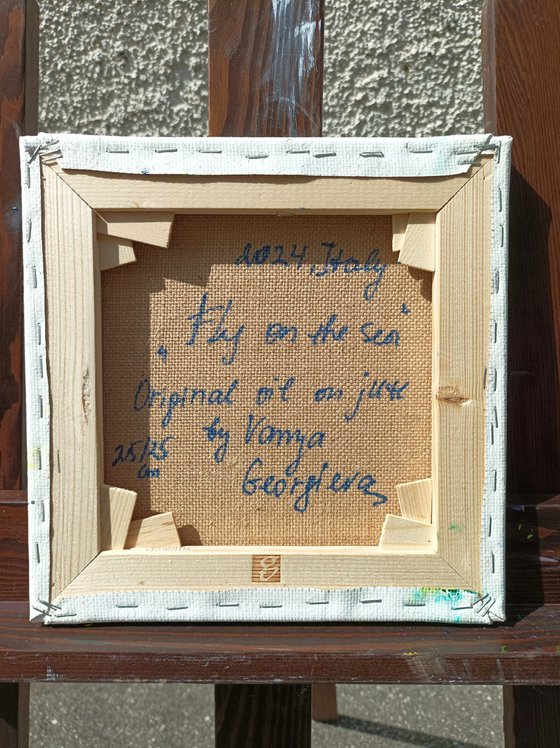 2024, Italy
"Fly on the sea"
Original oil on jute
by Vanya
25/25
cm
Georgieva